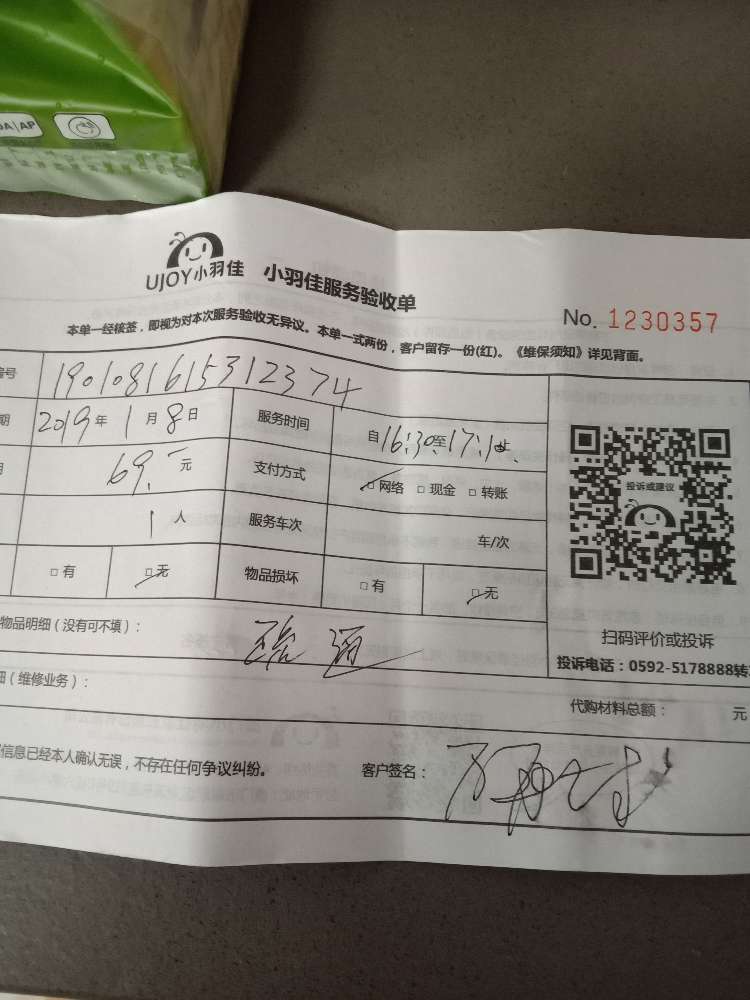 DA|AP
UJOY小羽佳 小羽佳服务验收单
No. 1230357
本单一经核签，即视为对本次服务验收无异议。本单一式两份，客户留存一份(红)。《维保须知》详见背面。
编号 1901081615312374
期 2019年 1月8日 服务时间 自16:30至17:1 止
69.元 支付方式 网络 现金 转账
1人 服务车次 车/次
有 无 物品损坏 有 无
投诉或建议
扫码评价或投诉
投诉电话：0592-5178888转
物品明细（没有可不填）： 疏通
细（维修业务）：
代购材料总额： 元
信息已经本人确认无误，不存在任何争议纠纷。 客户签名：